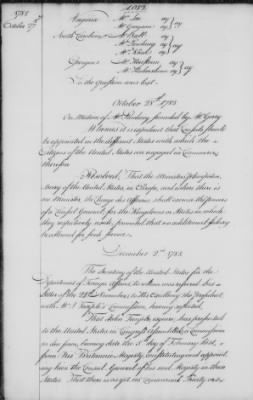 1785
October 27th
1089
Virginia Mr. Lee ay
Mr. Grayson ay } ay
North Carolina Mr. Bull ay
Mr. Sitgreaves ay } ay
Georgia Mr. Houstoun ay
So the question was lost.
October 28th 1785
On Motion of Mr. Pinckney seconded by Mr. Gerry
Whereas it is expedient that Consuls should
be appointed in the different States with which the
Citizens of the United States are engaged in Commerce
therefore
Resolved, That the Ministers Plenipoten-
tiary of the United States, in Europe, and where there is
no Minister, the Chargé des Affaires shall exercise the powers
of a Consul General for the Kingdoms or States in which
they respectively reside, provided that no additional salary
be allowed for such service.
December 2nd 1785
The Secretary of the United States for the
Department of Foreign Affairs, to whom was referred his
Letter of the 28th November, to His Excellency the President
with Mr. J. Temple's Commission, having reported,
That John Temple, esquire, has presented
to the United States in Congress Assembled a Commission
in due form, bearing date the 5th day of February last,
from His Britannic Majesty, constituting and appoint-
ing him the Consul General of his said Majesty in these
States. That there is as yet no Commercial Treaty or